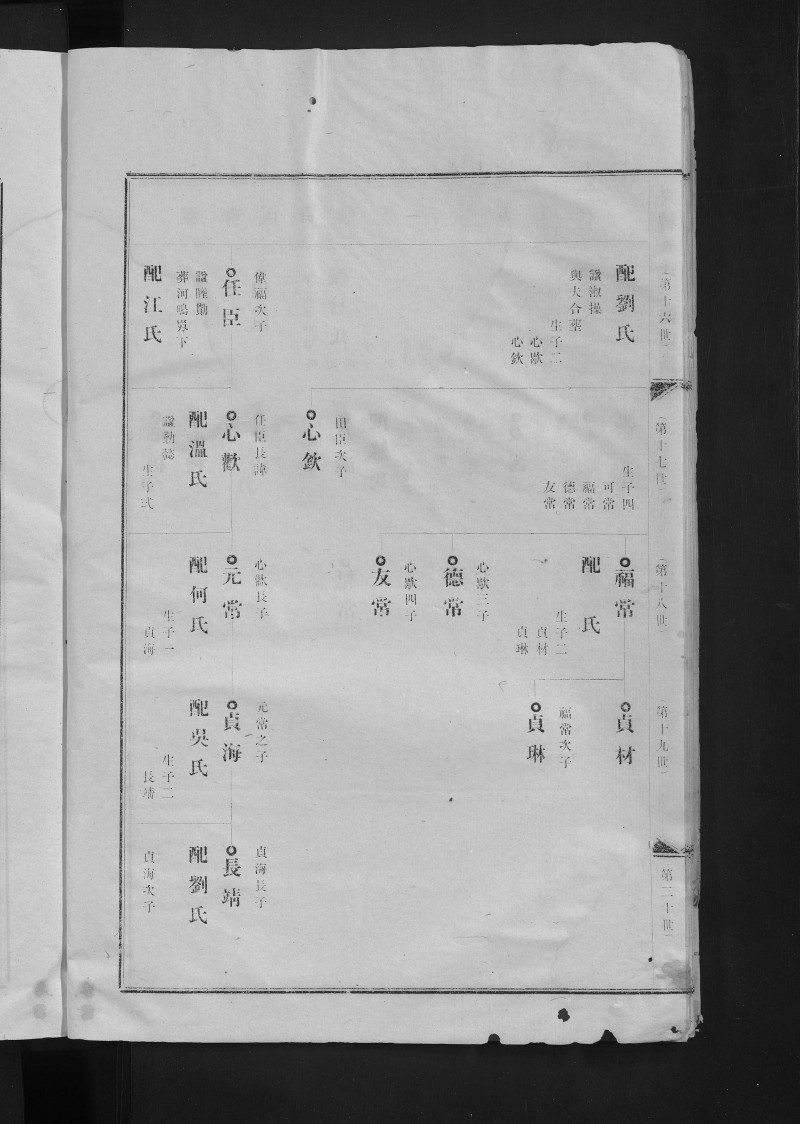 第十六世
配劉氏
諡淑操
與夫合塋
生子二
心歡
心欽
偉福次子
任臣
諡睦勤
葬河鳴㟁下
配江氏
第十七世
生子四
可常
福常
德常
友常
田臣次子
心欽
任臣長諱
心歡
配溫氏
諡勤懿
生子弍
第十八世
福常
配 氏
生子二
貞材
貞琳
心歡三子
德常
心歡四子
友常
心歡長子
元常
配何氏
生子一
貞海
第十九世
貞材
福常次子
貞琳
元常之子
貞海
配吳氏
生子二
長靖
第二十世
貞海長子
長靖
配劉氏
貞海次子